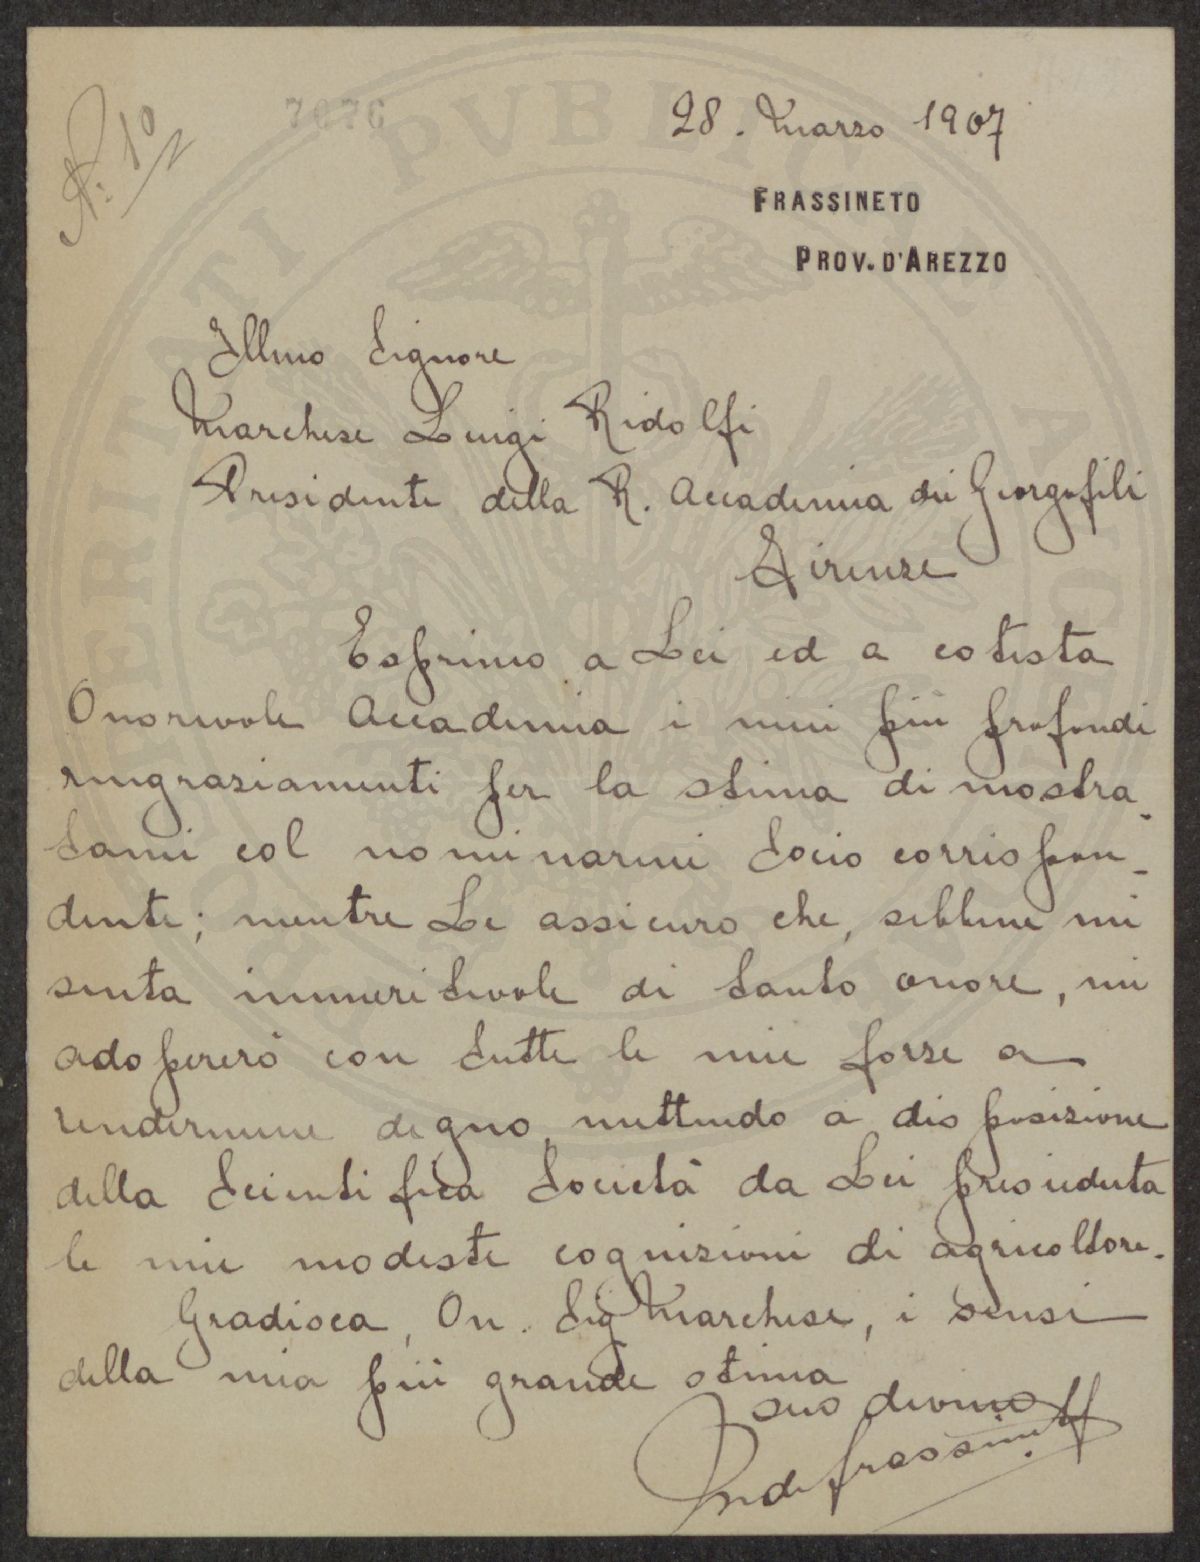 N. 1º
7076
28. Marzo 1907
FRASSINETO
PROV. D'AREZZO
Illmo Signore
Marchese Luigi Ridolfi
Presidente della R. Accademia dei Georgofili
Firenze
Esprimo a Lei ed a cotesta
Onorevole Accademia i miei più profondi
ringraziamenti per la stima dimostra-
tami col nominarmi Socio corrispon-
dente; mentre Le assicuro che, sebbene mi
senta immeritevole di tanto onore, mi
adoprerò con tutte le mie forze a
rendermene degno, mettendo a disposizione
della Scientifica Società da Lei presieduta
le mie modeste cognizioni di agricoltore.
Gradisca, On. Sig Marchese, i sensi
della mia più grande stima
suo devmo
di Frassineto